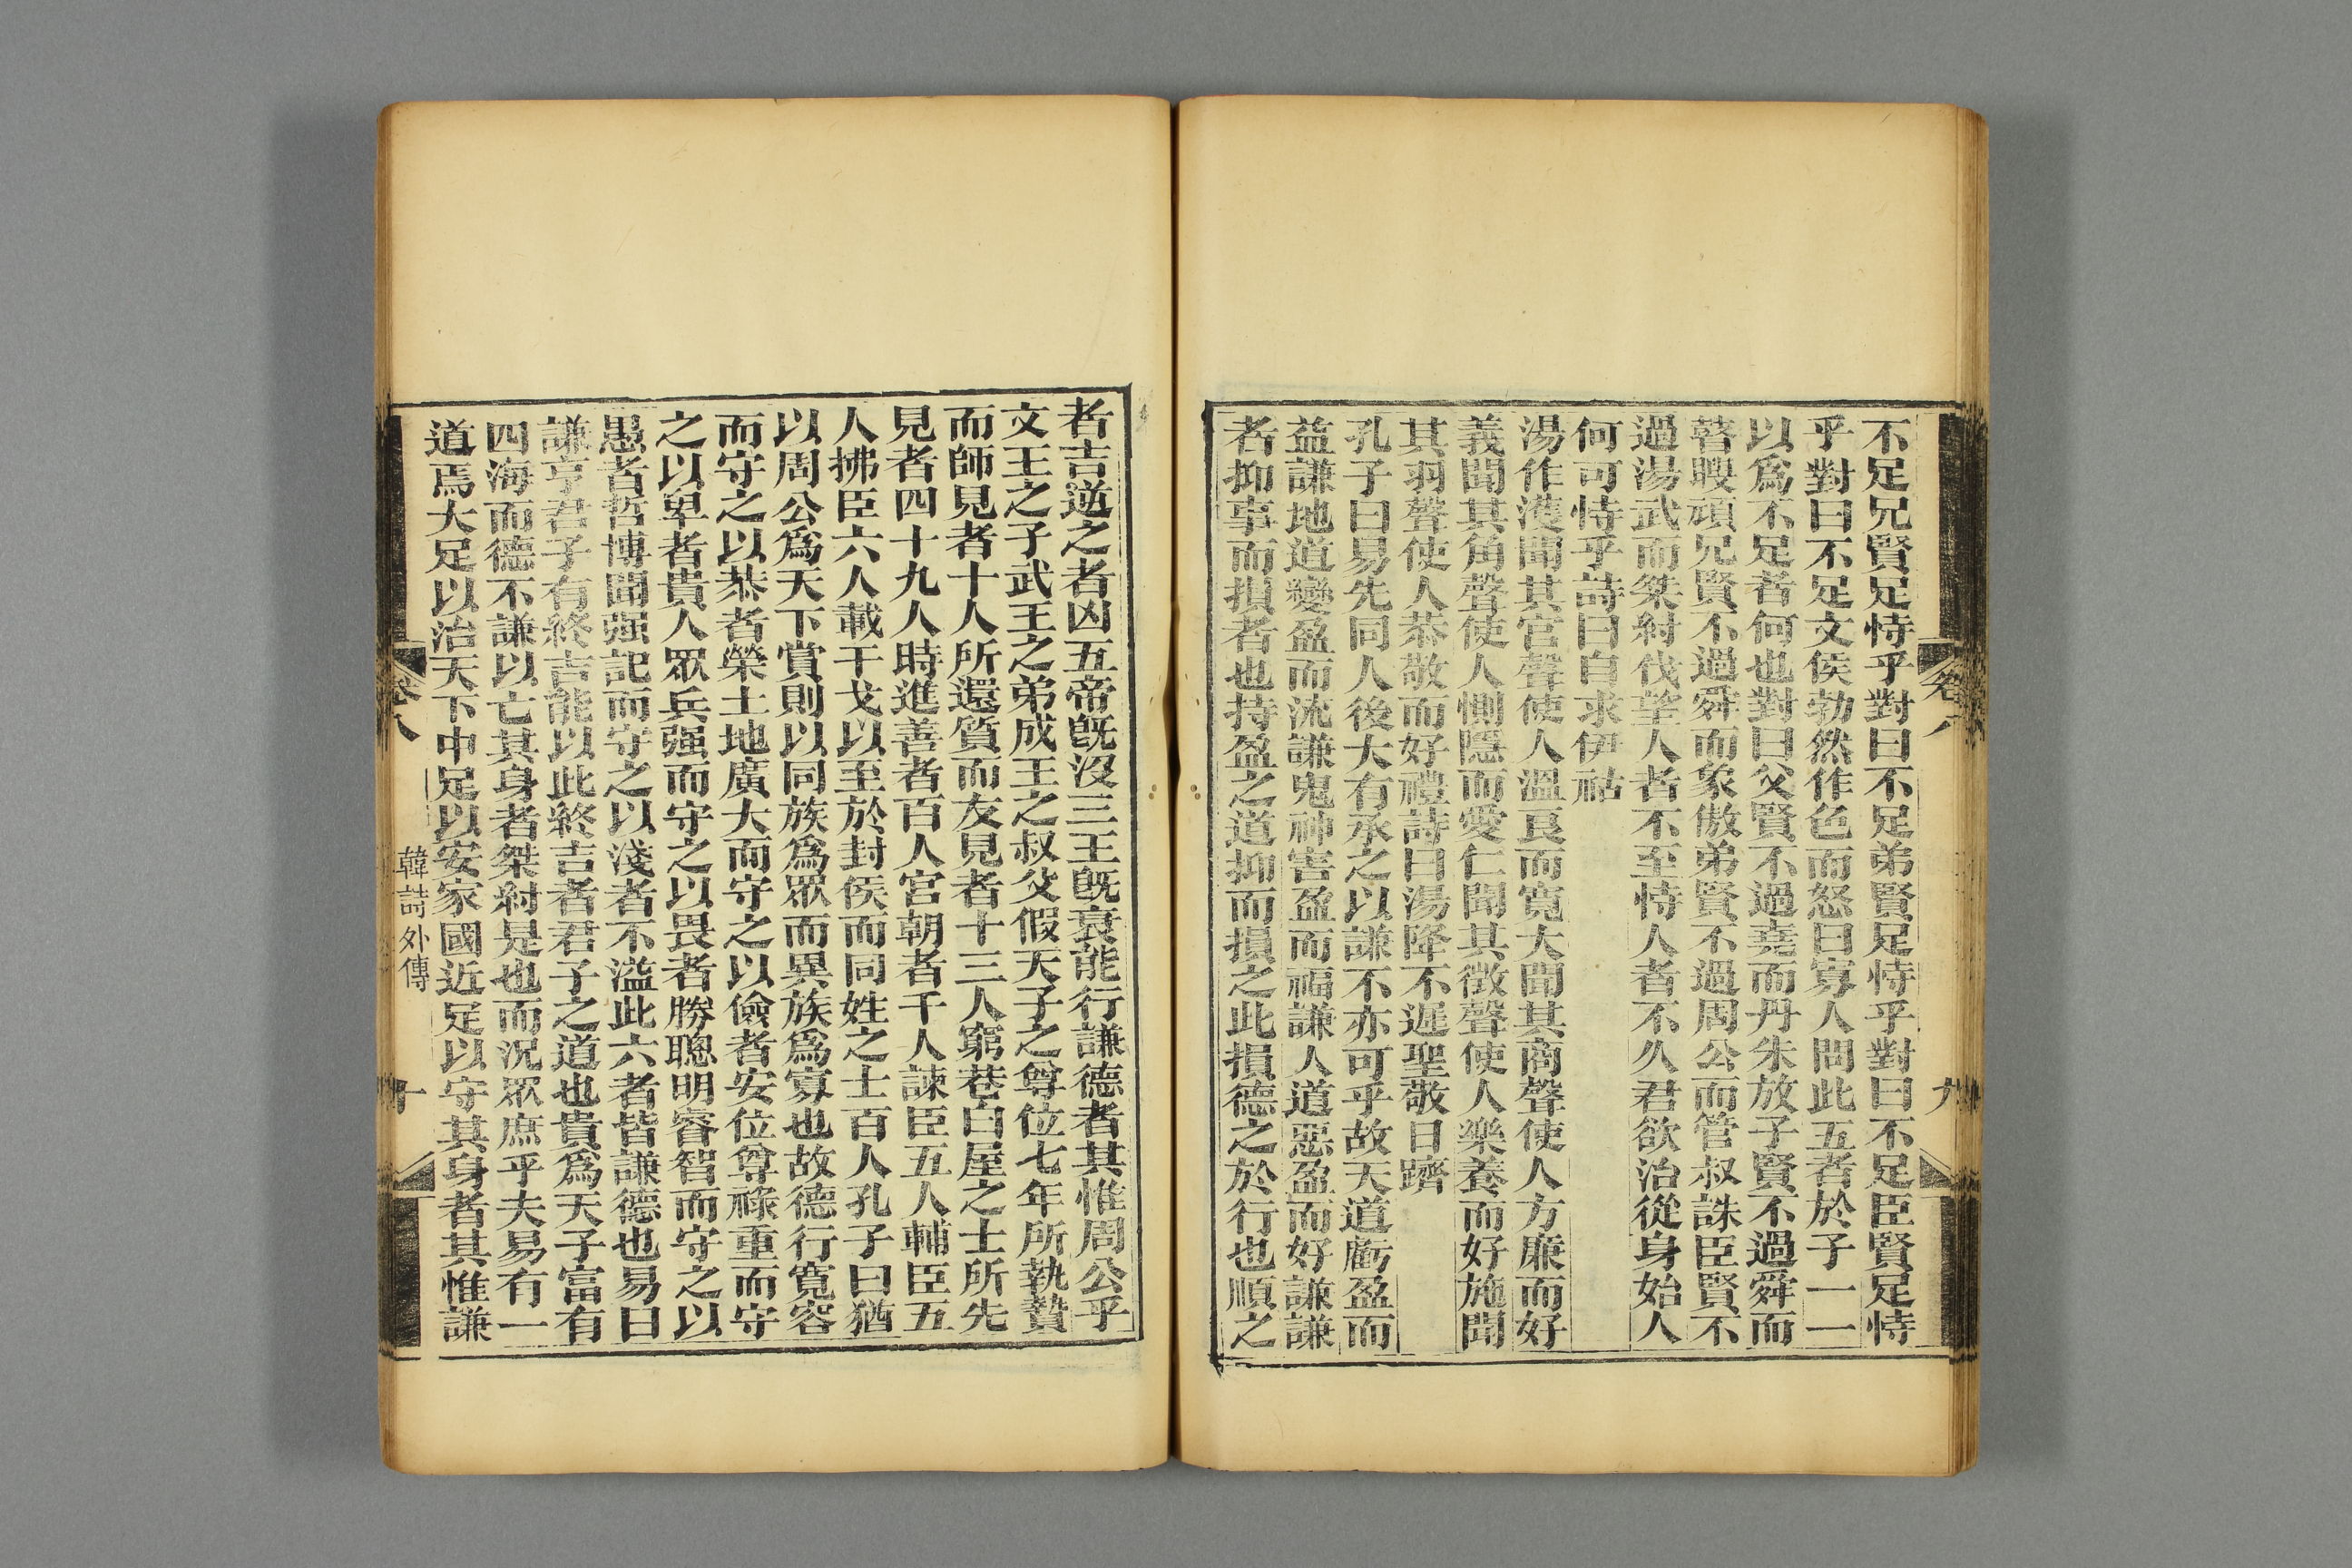 不足兄賢足恃乎對曰不足弟賢足恃乎對曰不足臣賢足恃
乎對曰不足文侯勃然作色而怒曰寡人問此五者於子一一
以爲不足者何也對曰父賢不過堯而丹朱放子賢不過舜而
瞽瞍頑兄賢不過舜而象傲弟賢不過周公而管叔誅臣賢不
過湯武而桀紂伐望人者不至恃人者不久君欲治從身始人
何可恃乎詩曰自求伊祜
湯作濩聞其宮聲使人溫良而寬大聞其商聲使人方廉而好
義聞其角聲使人惻隱而愛仁聞其徵聲使人樂養而好施聞
其羽聲使人恭敬而好禮詩曰湯降不遲聖敬日躋
孔子曰易先同人後大有承之以謙不亦可乎故天道虧盈而
益謙地道變盈而流謙鬼神害盈而福謙人道惡盈而好謙謙
者抑事而損者也持盈之道抑而損之此損德之於行也順之
卷八
九
者吉逆之者凶五帝既沒三王既衰能行謙德者其惟周公乎
文王之子武王之弟成王之叔父假天子之尊位七年所執贄
而師見者十人所還質而友見者十三人窮巷白屋之士所先
見者四十九人時進善者百人宮朝者千人諫臣五人輔臣五
人拂臣六人載干戈以至於封侯而同姓之士百人孔子曰猶
以周公爲天下賞則以同族爲眾而異族爲寡也故德行寬容
而守之以恭者榮土地廣大而守之以儉者安位尊祿重而守
之以卑者貴人眾兵强而守之以畏者勝聰明睿智而守之以
愚者哲博聞强記而守之以淺者不溢此六者皆謙德也易曰
謙亨君子有終吉能以此終吉者君子之道也貴爲天子富有
四海而德不謙以亡其身者桀紂是也而況眾庶乎夫易有一
道焉大足以治天下中足以安家國近足以守其身者其惟謙
卷八
韓詩外傳
十